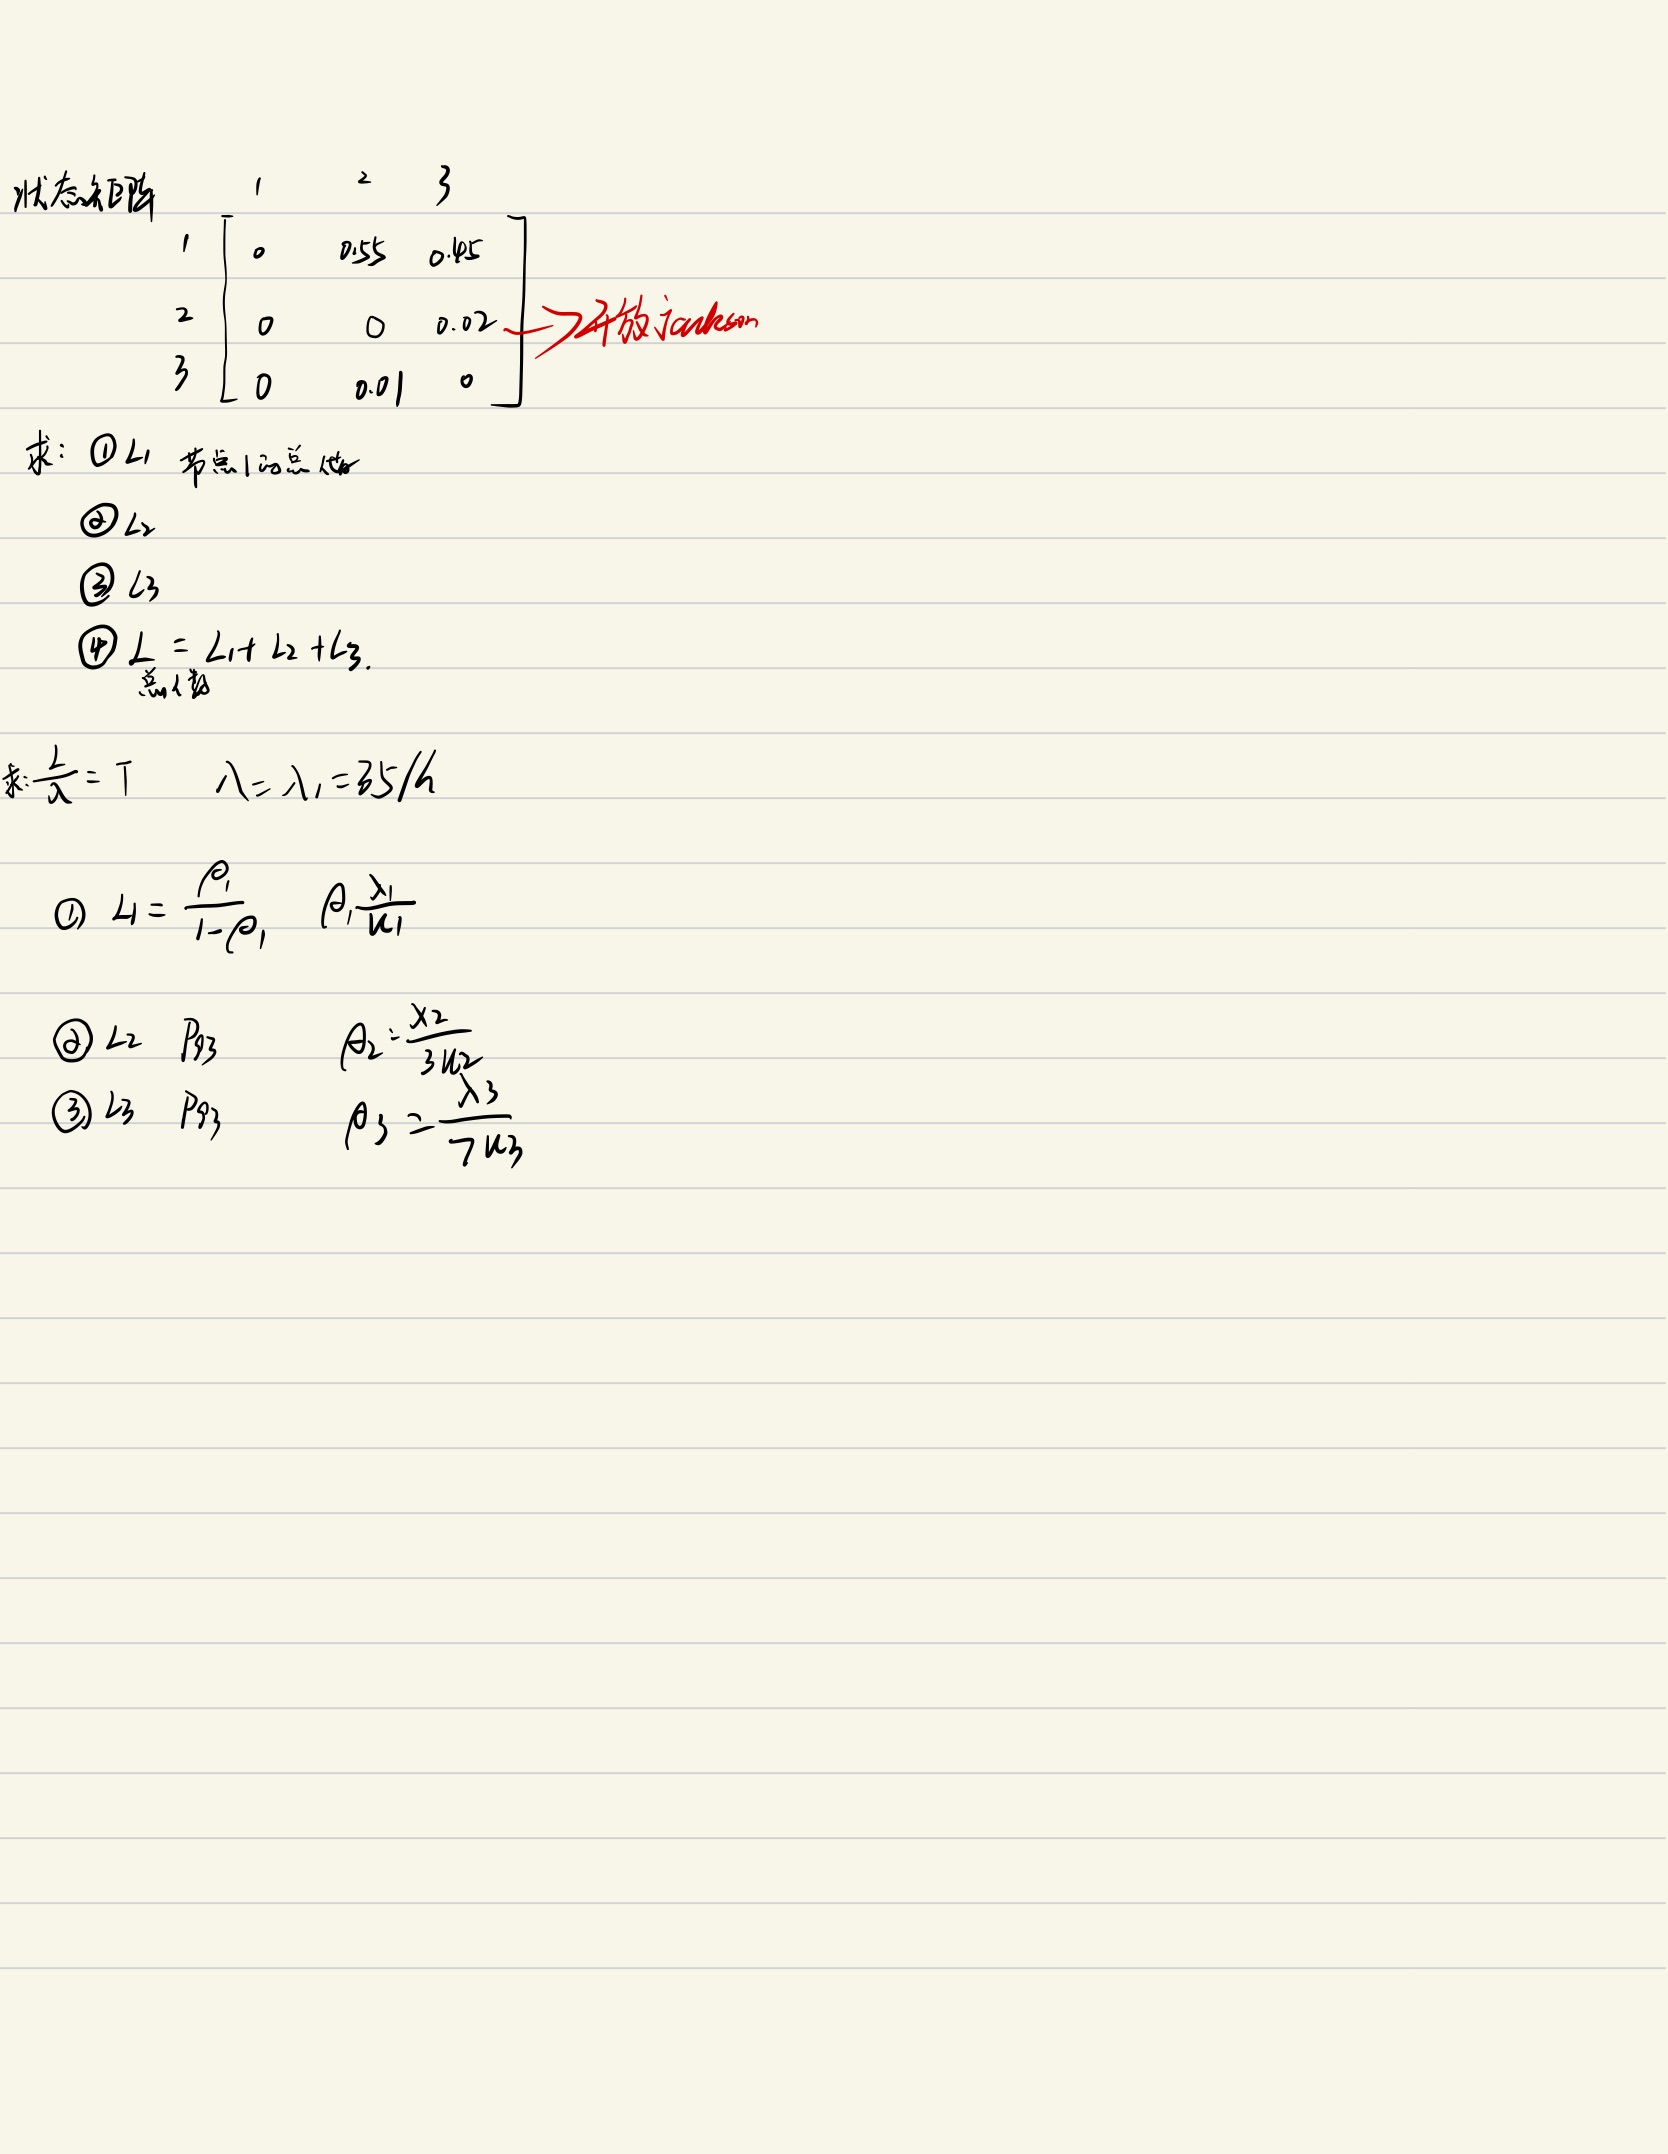 状态矩阵 1 2 3
1 0 0.55 0.45
2 0 0 0.02 → 开放jackson
3 0 0.01 0
求: ① L₁ 节点1的总人数
② L₂
③ L₃
④ L = L₁ + L₂ + L₃.
总人数
求: L/λ = T λ = λ₁ = 35/h
① L₁ = ρ₁/(1-ρ₁) ρ₁ λ₁/u₁
② L₂ Pq₃ ρ₂ = λ₂/3u₂
③ L₃ Pq₃ ρ₃ = λ₃/7u₃